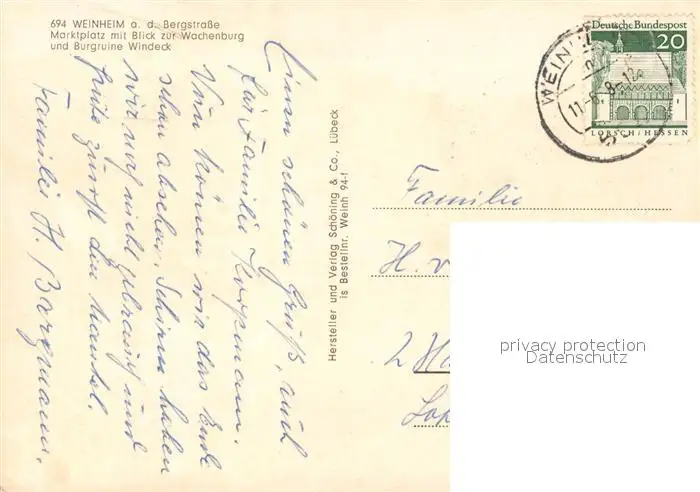 694 WEINHEIM a. d. Bergstraße
Marktplatz mit Blick zur Wachenburg
und Burgruine Windeck
Einen schönen Gruß, auch
für Familie
Nun können wir das Ende
schon absehen. Schirm haben
wir noch nicht gebraucht und
heute zuerst den Mantel.
Familie H. Borgmann.
Hersteller und Verlag Schöning & Co., Lübeck
is Bestellnr. Weinh 94-f
Deutsche Bundespost
20
LORSCH/HESSEN
WEINH
11.-6.
Familie
H. v
2 Ha
privacy protection
Datenschutz